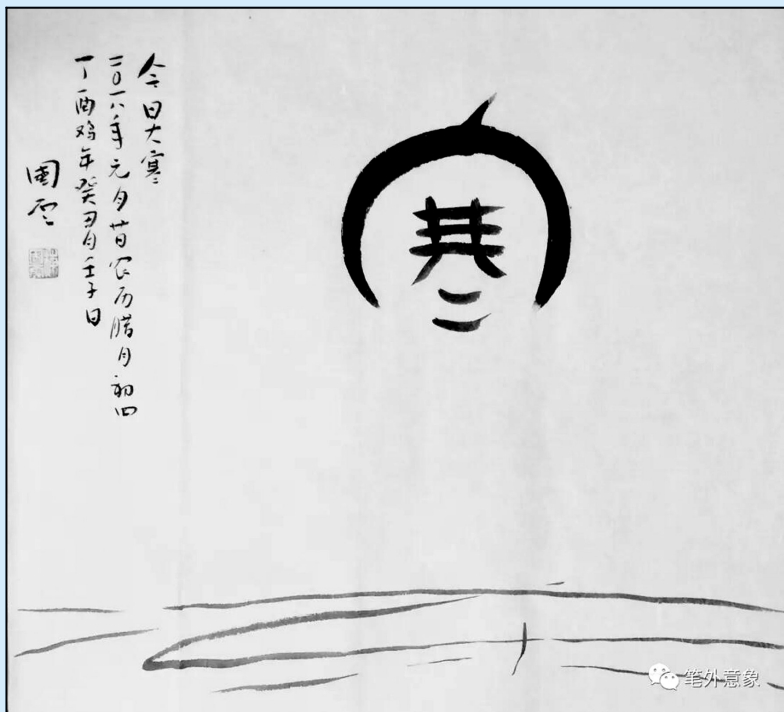 寒
今日大寒
二〇一八年元月廿日农历腊月初四
丁酉鸡年癸丑月壬子日
笔外意象